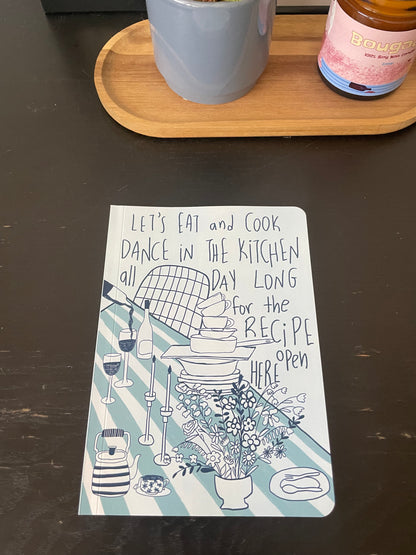 Bouga
100%
LET'S EAT and COOK
DANCE iN THE KiTCHEN
all DAY LONG
for the
RECiPE
open
HERE